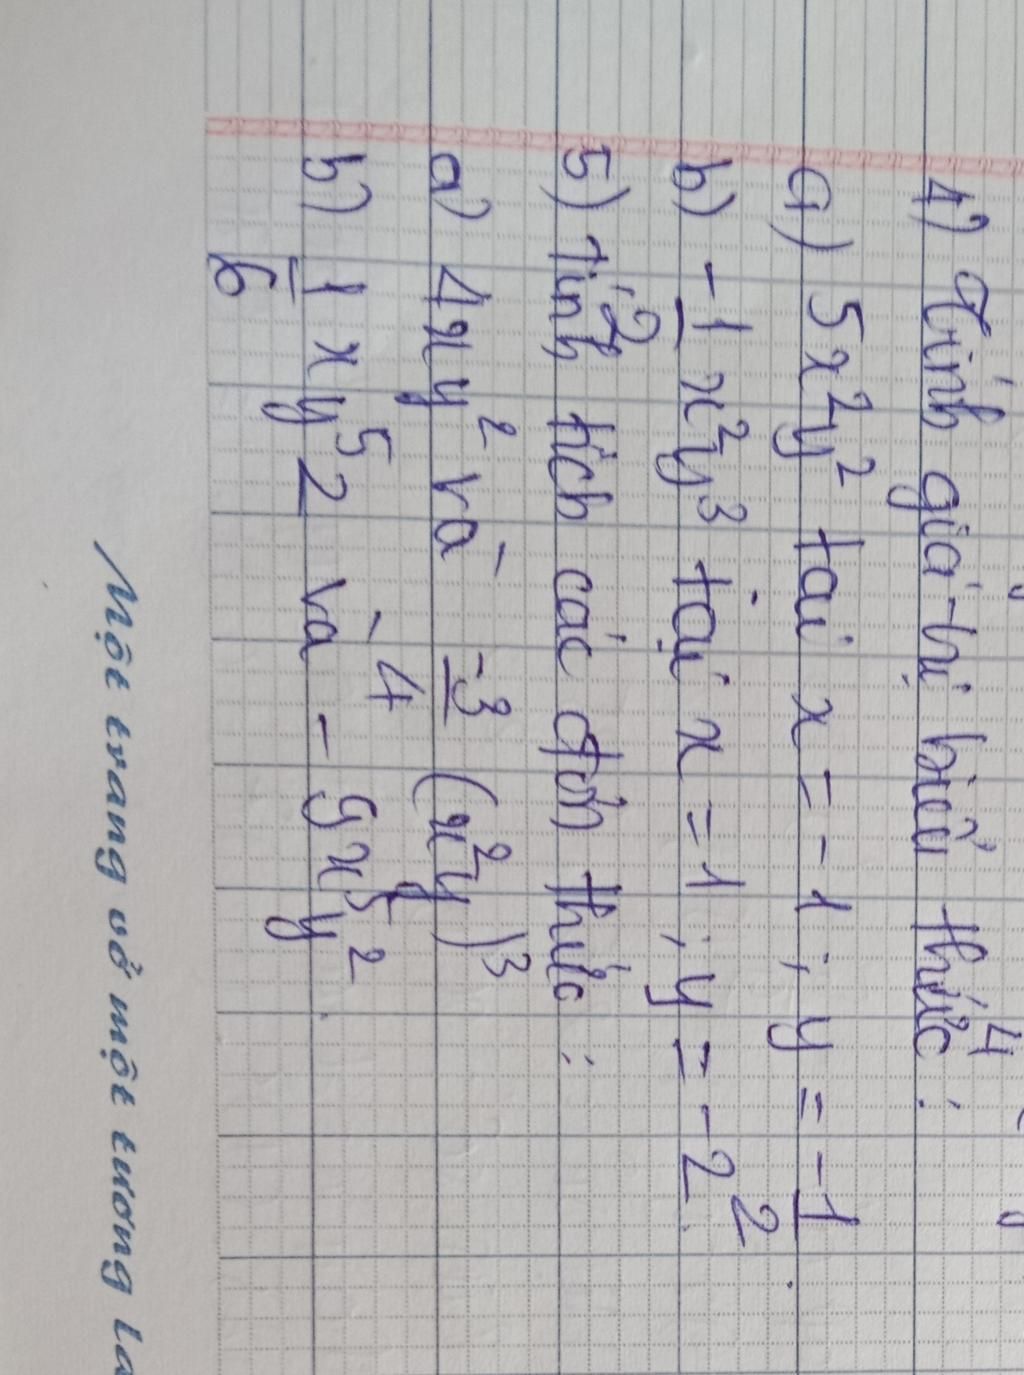 4) Tính giá trị biểu thức :
a) 5x²y² tại x = -1 ; y = -1/2 .
b) -1/2 x²y³ tại x = 1 ; y = -2.
5) Tính tích các đơn thức :
a) 4xy² và -3/4 (x²y)³
b) 1/6 xy⁵2 và - 9x⁵y².
Một trang vở một tương la